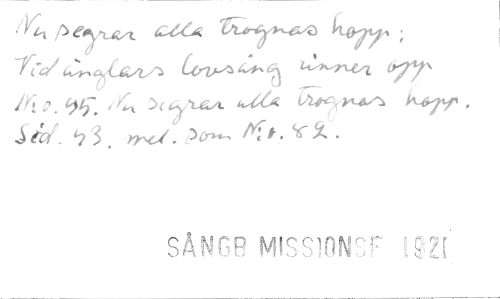 Nu segrar alla trognas hopp;
Vid änglars lovsång rinner opp
N:o. 45. Nu segrar alla trognas hopp.
Sid. 43. mel. som N:o. 82.
SÅNGB MISSIONSF 1921